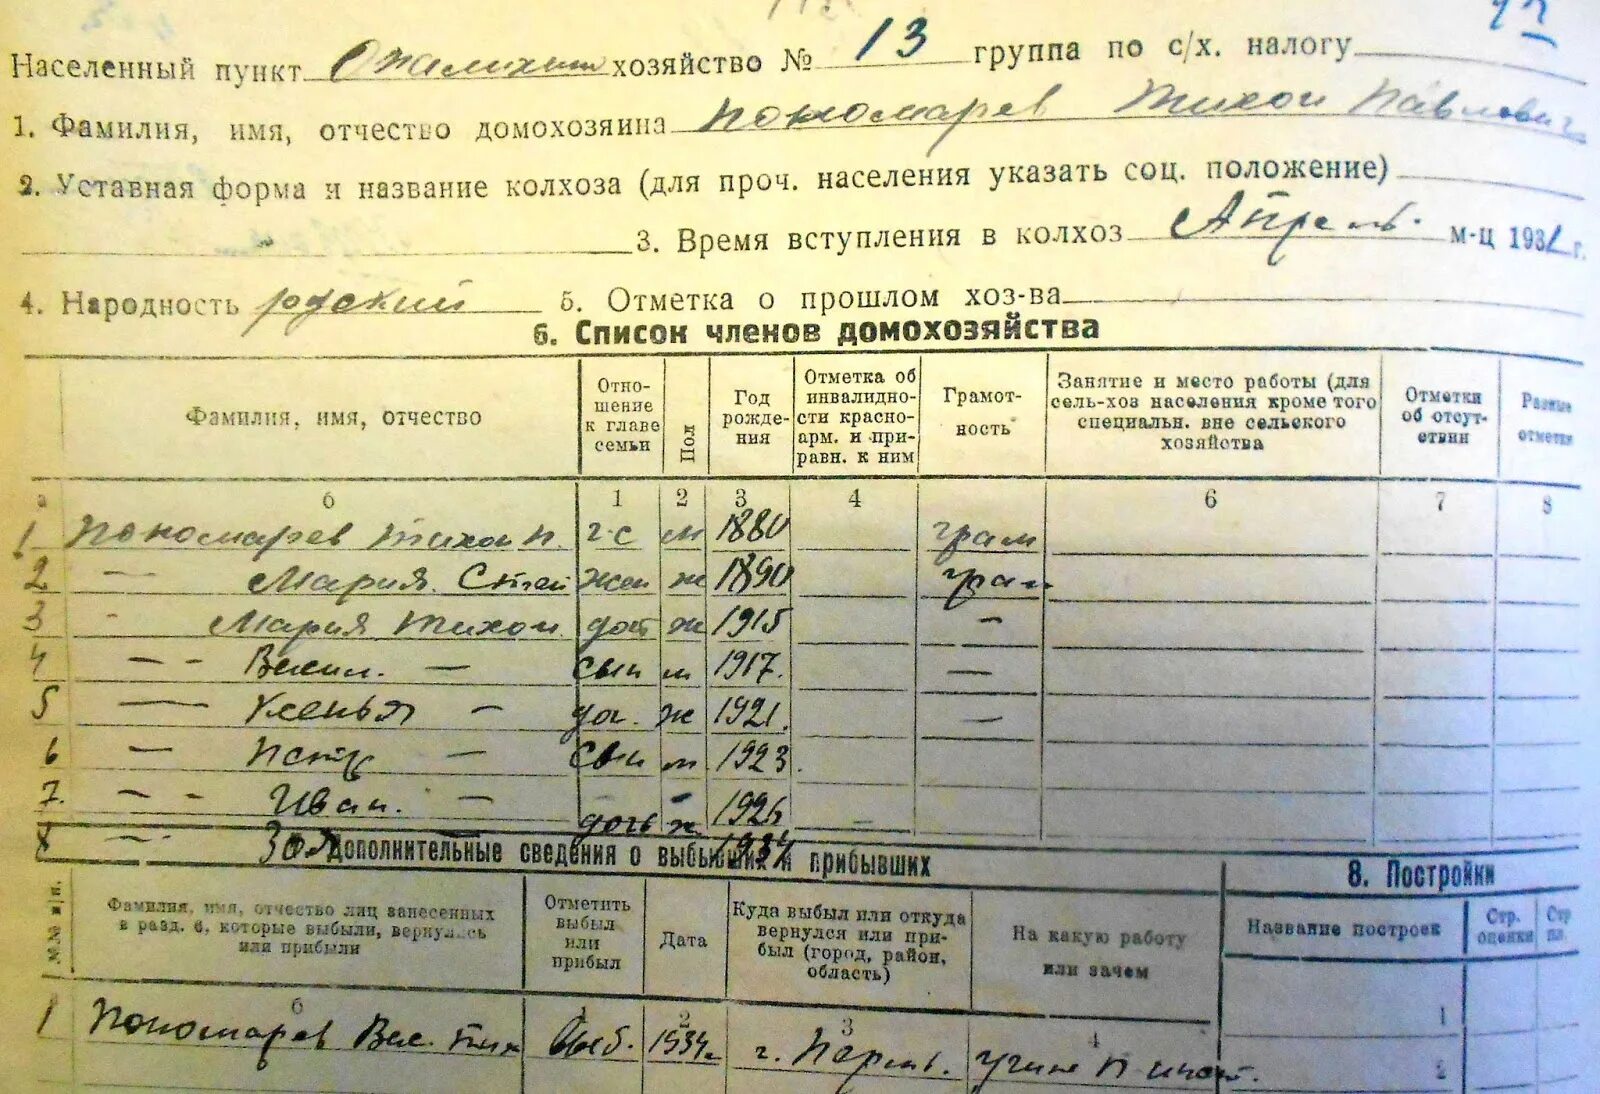 Населенный пункт Ожалихин хозяйство № 13 группа по с/х. налогу
1. Фамилия, имя, отчество домохозяина Пономарев Тихон Павлович
2. Уставная форма и название колхоза (для проч. населения указать соц. положение)
3. Время вступления в колхоз Апрель м-ц 1931 г.
4. Народность русский 5. Отметка о прошлом хоз-ва
6. Список членов домохозяйства
Фамилия, имя, отчество
Отношение к главе семьи
Пол
Год рождения
Отметка об инвалидности красноарм. и приравн. к ним
Грамотность
Занятие и место работы (для сель-хоз населения кроме того специальн. вне сельского хозяйства
Отметки об отсутствии
Разные отметки
а б 1 2 3 4 5 6 7 8
1 Пономарев Тихон П. г.с м 1880 грам
2 — Мария Степ жен ж 1890 грам
3 - Мария Тихон. доч ж 1915 —
4 — - Васил. — сын м 1917. —
5 — Ксенья — доч. ж 1921. —
6 — Петр — сын м. 1923
7. — - Иван. — - - 1926 —
8 — - Зоя — дочь ж 1934
Дополнительные сведения о выбывших и прибывших
8. Постройки
№№ п/п.
Фамилия, имя, отчество лиц занесенных в разд. 6, которые выбыли, вернулись или прибыли
Отметить выбыл или прибыл
Дата
Куда выбыл или откуда вернулся или прибыл (город, район, область)
На какую работу или зачем
Название построек
Стр. оценки
б 1 2 3 4
1 Пономарев Вас. Тих выб. 1934г г. Пермь.
1
2